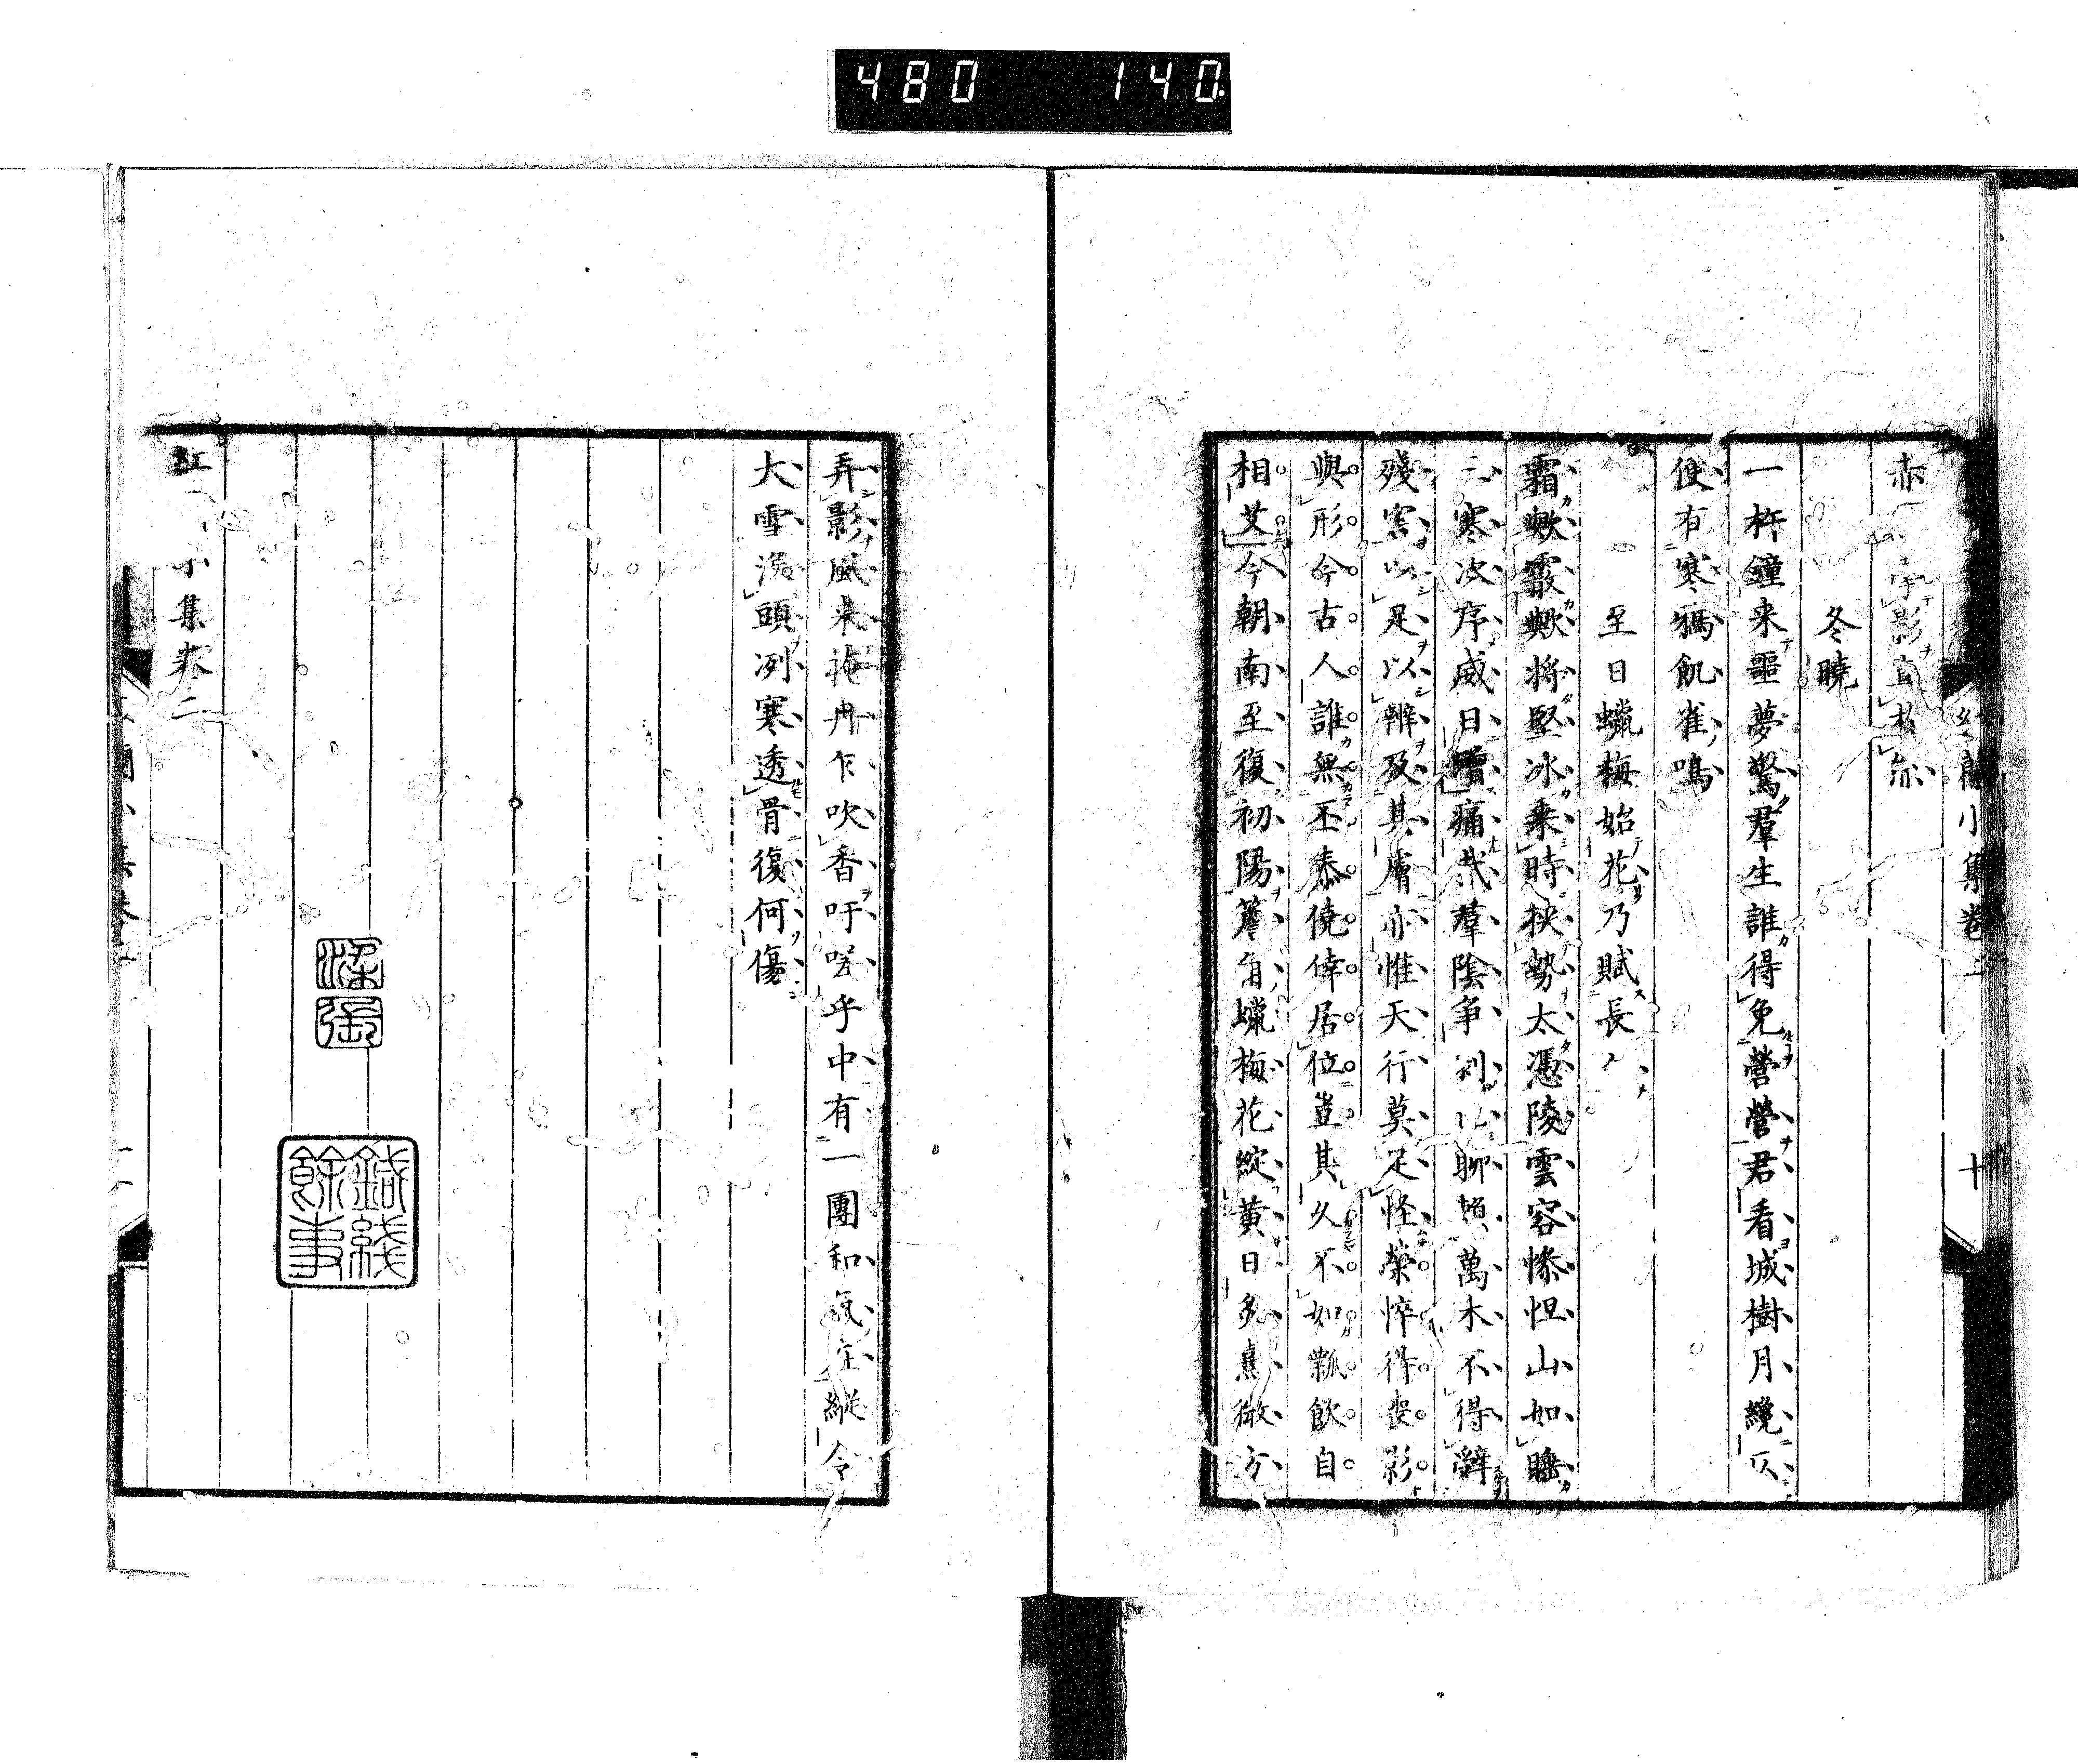 480 140
赤 字影自 尓
冬曉
一杵鐘来噩夢驚羣生誰得免營營君看城樹月纔仄
便有寒鴉飢雀鳴
至日蠟梅始花乃賦長
霜歟霰歟將堅冰来時挾勢太憑陵雲容慘怛山如睡
寒次序威日增痛哉羣陰爭 聊賴萬木不得辭
殘害以是以辨及其膚亦惟天行莫足怪榮悴得喪影
與形今古人誰無丕泰僥倖居位豈其久不如瓢飲自
相艾今朝南至復初陽簷角蠟梅花綻黃日多熹微方
弄影風来 冉乍吹香吁嗟乎中有一團和氣在縱令
大雪沒頭冽寒透骨復何傷
紅 小集卷二
鍼綫餘事
小集卷 十